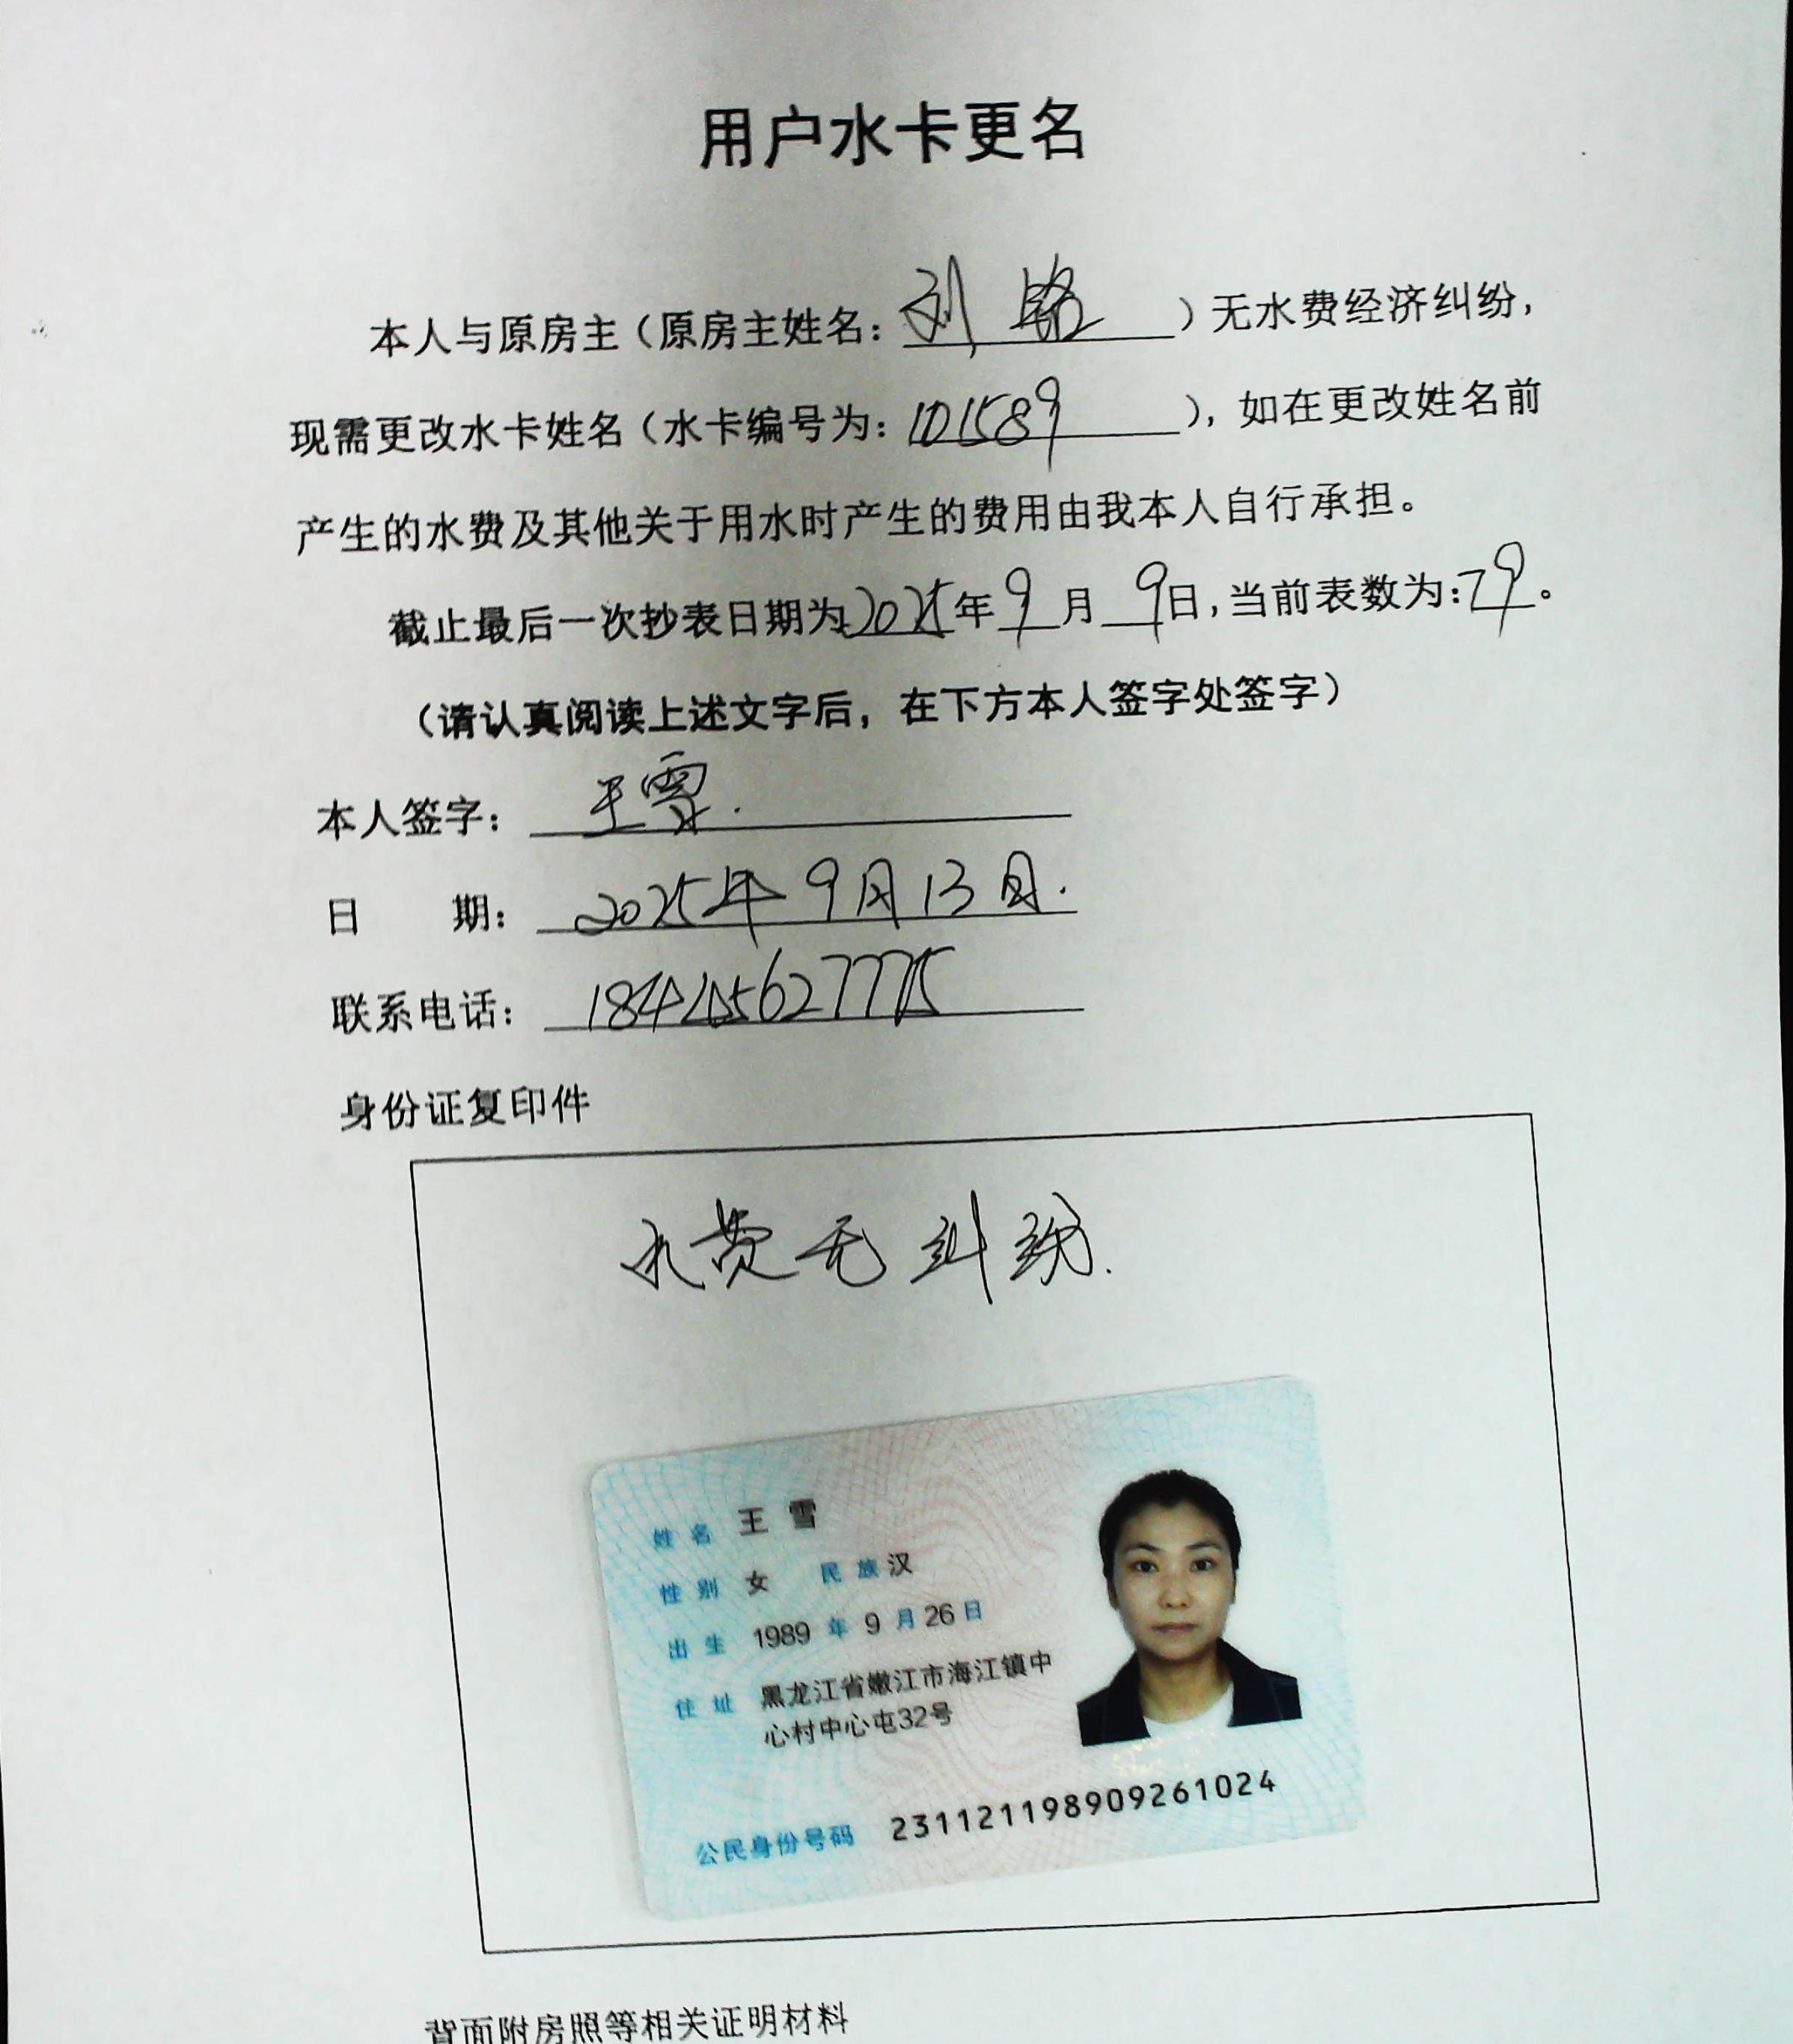 用户水卡更名
本人与原房主（原房主姓名：刘 ）无水费经济纠纷，
现需更改水卡姓名（水卡编号为：101589），如在更改姓名前
产生的水费及其他关于用水时产生的费用由我本人自行承担。
截止最后一次抄表日期为2025年9月9日，当前表数为：79。
（请认真阅读上述文字后，在下方本人签字处签字）
本人签字：王雪.
日 期：2025年9月13日.
联系电话：
身份证复印件
水费无纠纷.
姓名 王雪
性别 女 民族 汉
出生 1989年9月26日
住址 黑龙江省嫩江市海江镇中
心村中心屯32号
公民身份号码 231121198909261024
背面附房照等相关证明材料